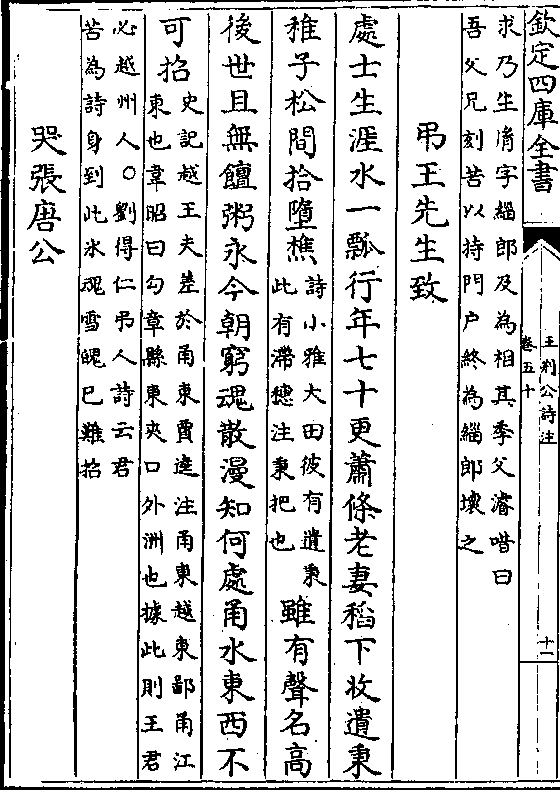 欽定四庫全書
王荆公詩注
卷五十
十一
求乃生胤字緇郎及為相其季父濬喈曰
吾父兄刻苦以持門户終為緇郎壞之
弔王先生致
處士生涯水一瓢行年七十更蕭條老妻稻下收遺秉
稚子松間拾墮樵詩小雅大田彼有遺秉此有滯穗注秉把也雖有聲名高
後世且無饘粥永今朝窮魂散漫知何處甬水東西不
可招史記越王夫差於甬東費逵注甬東越東鄙甬江東也韋昭曰勾章縣東夾口外洲也據此則王君
必越州人○劉得仁弔人詩云君
苦為詩身到此氷魂雪魄已難招
哭張唐公